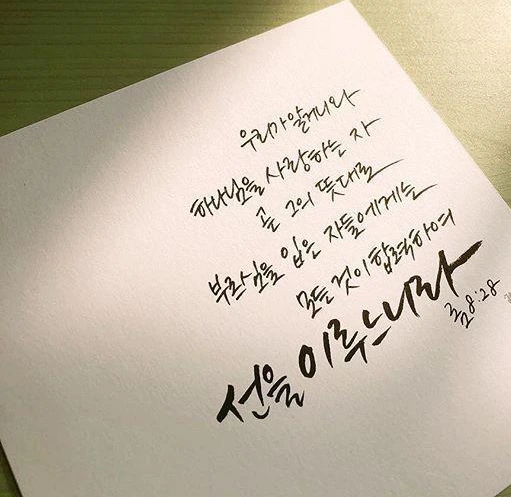 우리가 알거니와
하나님을 사랑하는 자
곧 그의 뜻대로
부르심을 입은 자들에게는
모든 것이 합력하여
선을 이루느니라
롬 8:28